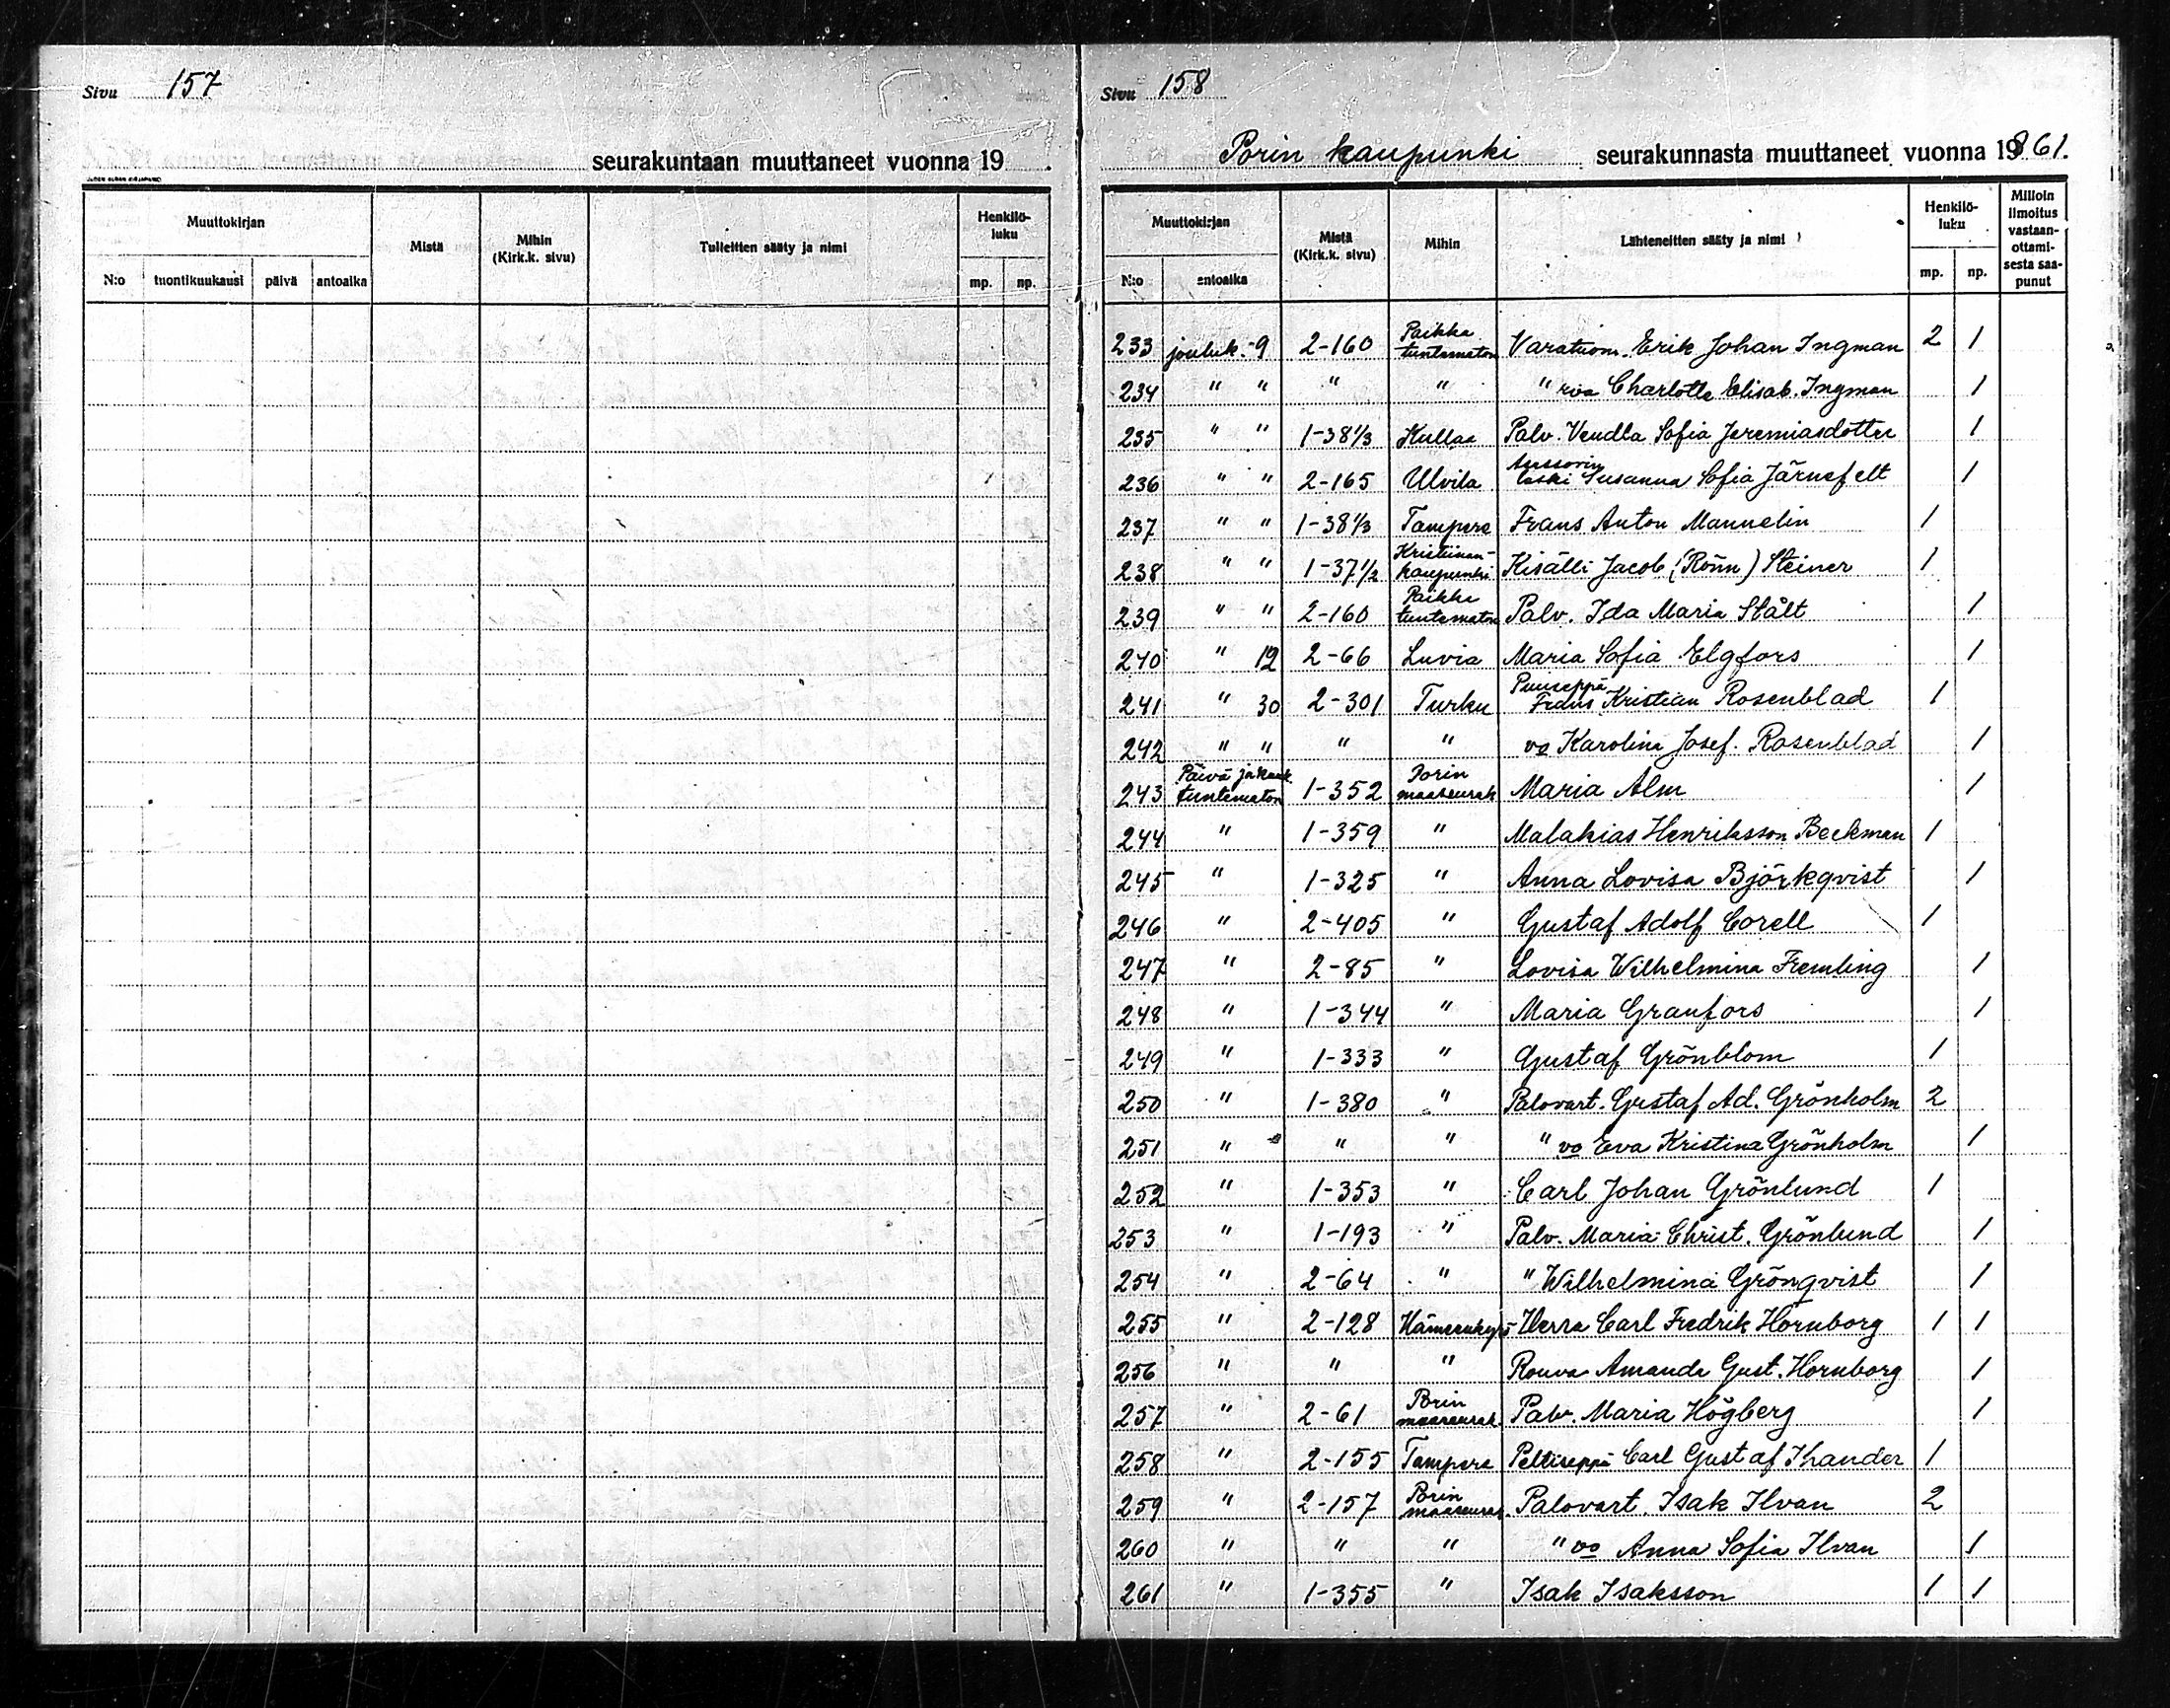 Sivu 157
seurakuntaan muuttaneet vuonna 19 .
Muuttokirjan Mistä Mihin (Kirk.k. sivu) Tulleitten sääty ja nimi Henkilöluku
N:o tuontikuukausi päivä antoaika mp. np.
Sivu 158
Porin kaupunki seurakunnasta muuttaneet vuonna 1861.
Muuttokirjan Mistä (Kirk.k. sivu) Mihin Lähteneitten sääty ja nimi Henkilö-luku Milloin ilmoitus vastaan-ottami-sesta saa-punut
N:o antoaika mp. np.
233 jouluk. 9 2-160 Paikka tuntematon Varatuom. Erik Johan Ingman 2 1
234 " " " " " rva Charlotta Elisab. Ingman 1
235 " " 1-38 1/3 Kullaa Palv. Vendla Sofia Jeremiasdotter 1
236 " " 2-165 Ulvila leski Susanna Sofia Järnefelt 1
237 " " 1-38 1/3 Tampere Frans Anton Mannelin 1
238 " " 1-37 1/2 Kristiinan-kaupunki Kisälli Jacob (Rönn) Steiner 1
239 " " 2-160 Paikka tuntematon Palv. Ida Maria Stålt 1
240 " 12 2-66 Luvia Maria Sofia Elgfors 1
241 " 30 2-301 Turku Puuseppä Frans Kristian Rosenblad 1
242 " " " " vo Karolina Josef. Rosenblad 1
243 Päivä ja kuuk. tuntematon 1-352 Porin maaseurak Maria Alm 1
244 " 1-359 " Malakias Henriksson Beckman 1
245 " 1-325 " Anna Lovisa Björkqvist 1
246 " 2-405 " Gustaf Adolf Corell 1
247 " 2-85 " Lovisa Wilhelmina Fremling 1
248 " 1-344 " Maria Granfors 1
249 " 1-333 " Gustaf Grönblom 1
250 " 1-380 " Palovart. Gustaf Ad. Grönholm 2
251 " " " " vo Eva Kristina Grönholm 1
252 " 1-353 " Carl Johan Grönlund 1
253 " 1-193 " Palv. Maria Christ. Grönlund 1
254 " 2-64 " " Wilhelmina Grönqvist 1
255 " 2-128 Hämeenkyrö Herra Carl Fredrik Hornborg 1 1
256 " " " Rouva Amanda Gust. Hornborg 1
257 " 2-61 Porin maaseurak. Palv. Maria Högberg 1
258 " 2-155 Tampere Peltiseppä Carl Gustaf Ihander 1
259 " 2-157 Porin maaseurak. Palovart. Isak Ilvan 2
260 " " " " vo Anna Sofia Ilvan 1
261 " 1-355 " Isak Isaksson 1 1